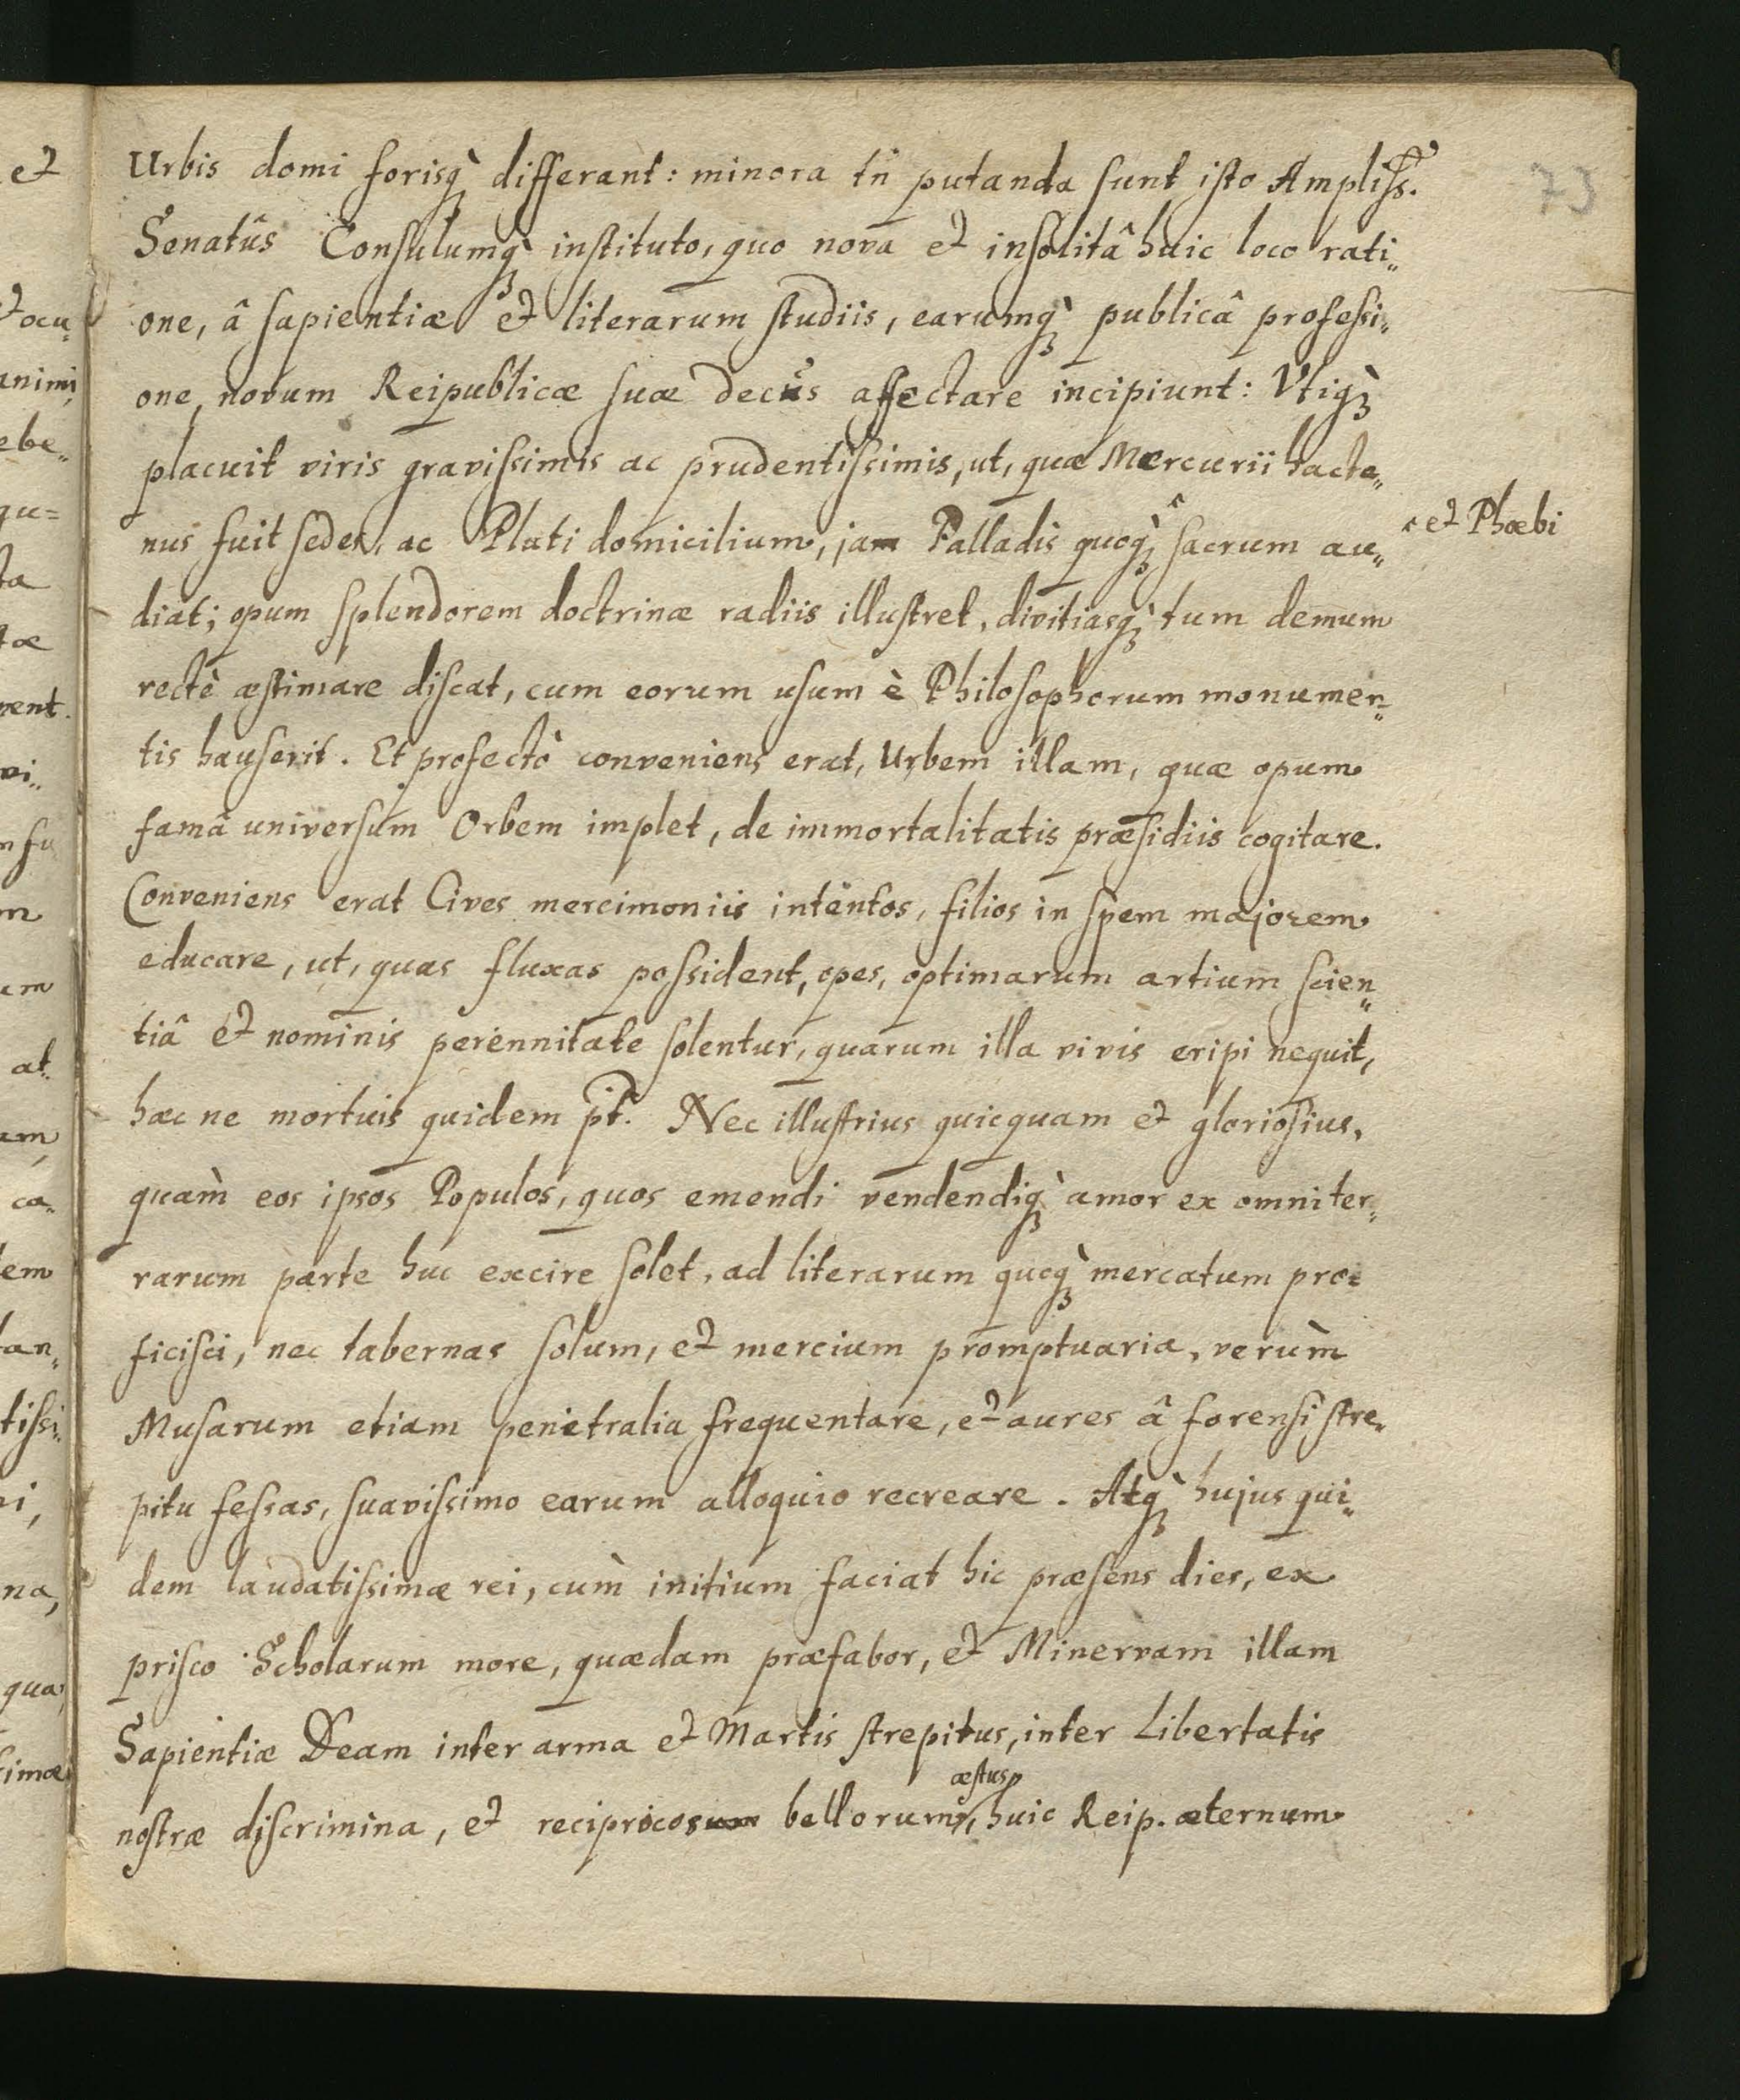 Urbis domi forisq̀ differant: minora tñ putanda sunt isto Ampliss.
73
Senatûs Consulumq̀ instituto, quo novâ et insolitâ huic loco rati„
one, â sapientiæ et literarum studiis, earumq̀ publicâ professi„
one, novum Reipublicæ suæ decus affectare incipiunt: Utiq̀
placuit viris gravissimis ac prudentissimis, ut, quæ Mercurii hacte„
nus fuit sedes, ac Pluti domicilium, jam Palladis quoq̀ ^ sacrum au„
^ et Phœbi
diat; opum splendorem doctrinæ radiis illustret, divitiasq̀ tum demum
rectè æstimare discat, cum eorum usum è Philosophorum monumen„
tis hauserit. Et profectò conveniens erat, Urbem illam, quæ opum
famâ universum Orbem implet, de immortalitatis præsidiis cogitare.
Conveniens erat Cives mercimoniis intentos, filios in spem majorem
educare, ut, quas fluxas possident, opes, optimarum artium scien„
tiâ et nominis perennitate solentur, quarum illa vivis eripi nequit,
hæc ne mortuis quidem pt̃. Nec illustrius quicquam et gloriosius,
quam̀ eos ipsos Populos, quos emendi vendendiq̀ amor ex omni ter„
rarum parte huc excire solet, ad literarum quoq̀ mercatum pro=
ficisci, nec tabernas solum, et mercium promptuaria, verùm
Musarum etiam penetralia frequentare, et aures â forensi stre„
pitu fessas, suavissimo earum alloquio recreare. Atq̀ hujus qui„
dem laudatissimæ rei, cùm initium faciat hic præsens dies, ex
prisco Scholarum more, quædam præfabor, et Minervam illam
Sapientiæ Deam inter arma et Martis strepitus, inter Libertatis
æstus
nostræ discrimina, et recipricos bellorum, huic Reip. æternum